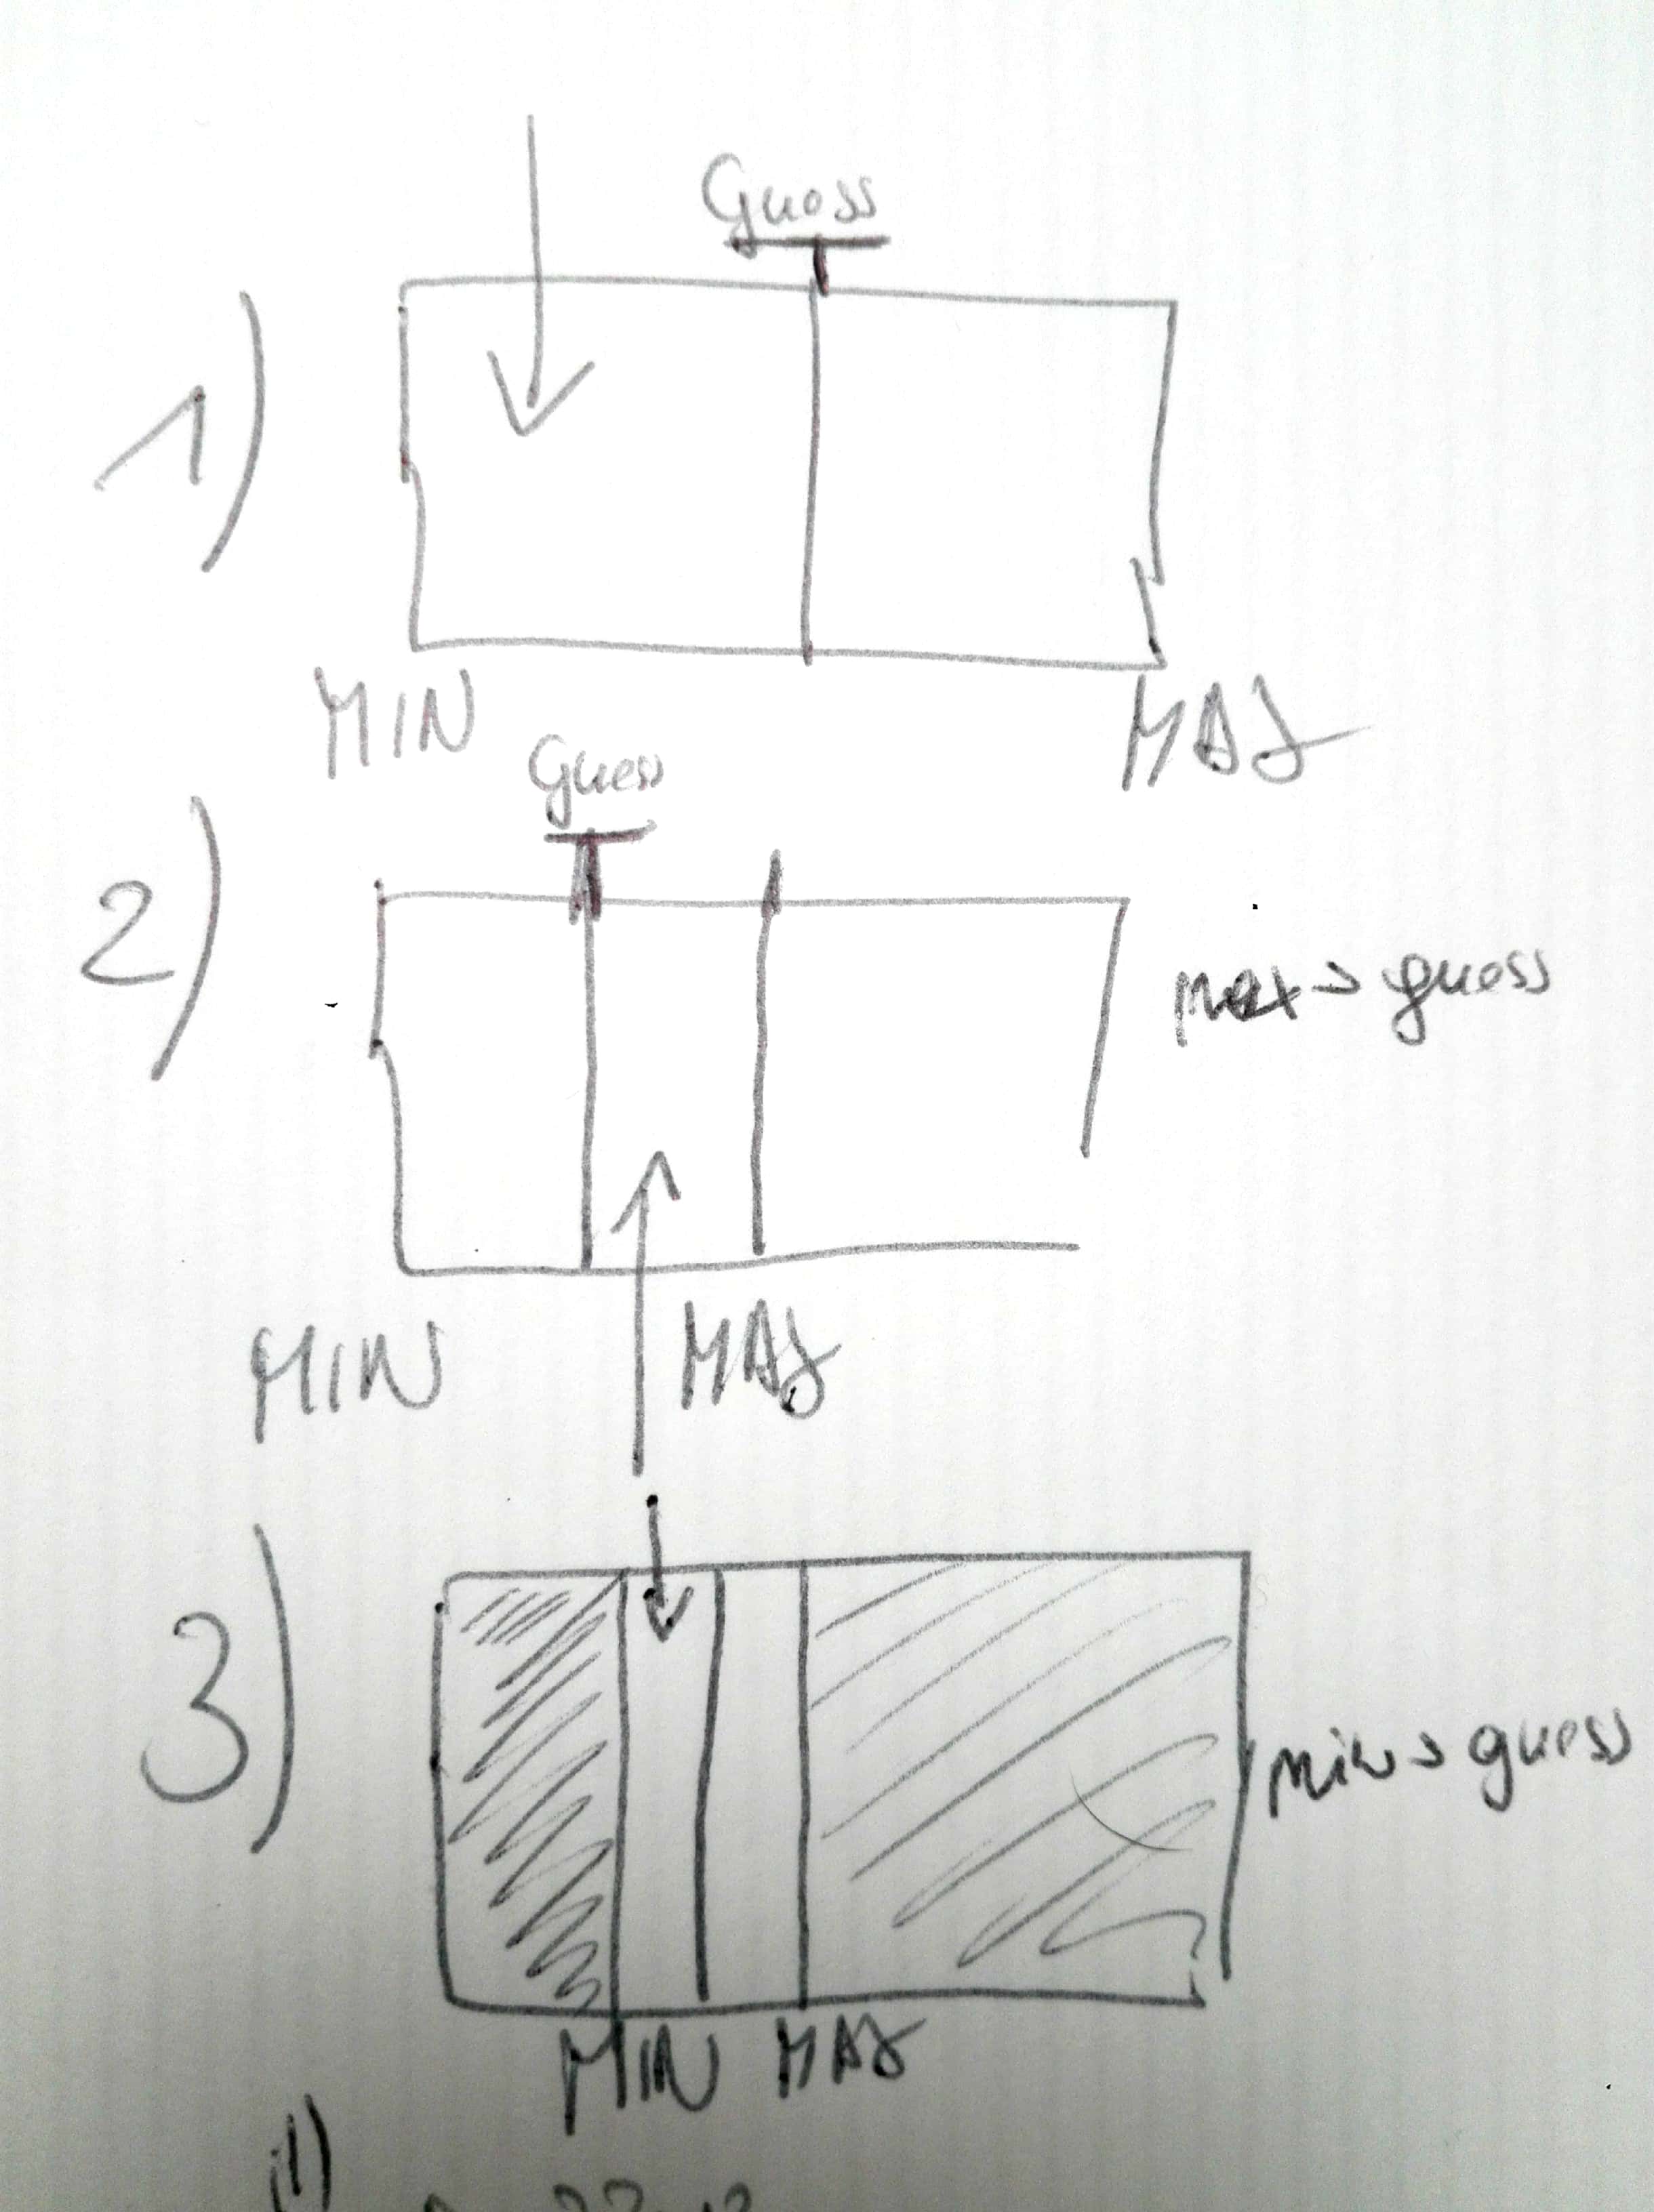 Guess
1)
MIN MAX
Guess
2)
max → guess
MIN MAX
3)
min → guess
MIN MAX